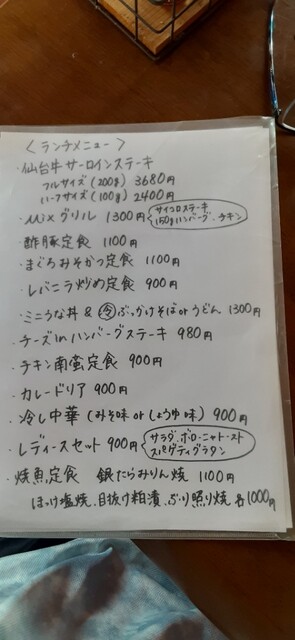 〈ランチメニュー〉
・仙台牛サーロインステーキ
フルサイズ(200g) 3680円
ハーフサイズ(100g) 2400円
・Mixグリル 1300円 サイコロステーキ
150gハンバーグ、チキン
・酢豚定食 1100円
・まぐろみそかつ定食 1100円
・レバニラ炒め定食 900円
・ミニうな丼 & 冷ぶっかけそばorうどん 1300円
・チーズinハンバーグステーキ 980円
・チキン南蛮定食 900円
・カレードリア 900円
・冷し中華(みそ味 or しょうゆ味) 900円
・レディースセット 900円 サラダ、ボローニャトースト
スパゲティグラタン
・焼魚定食 銀たらみりん焼 1100円
ほっけ塩焼、目抜け粕漬、ぶり照り焼 各1000円